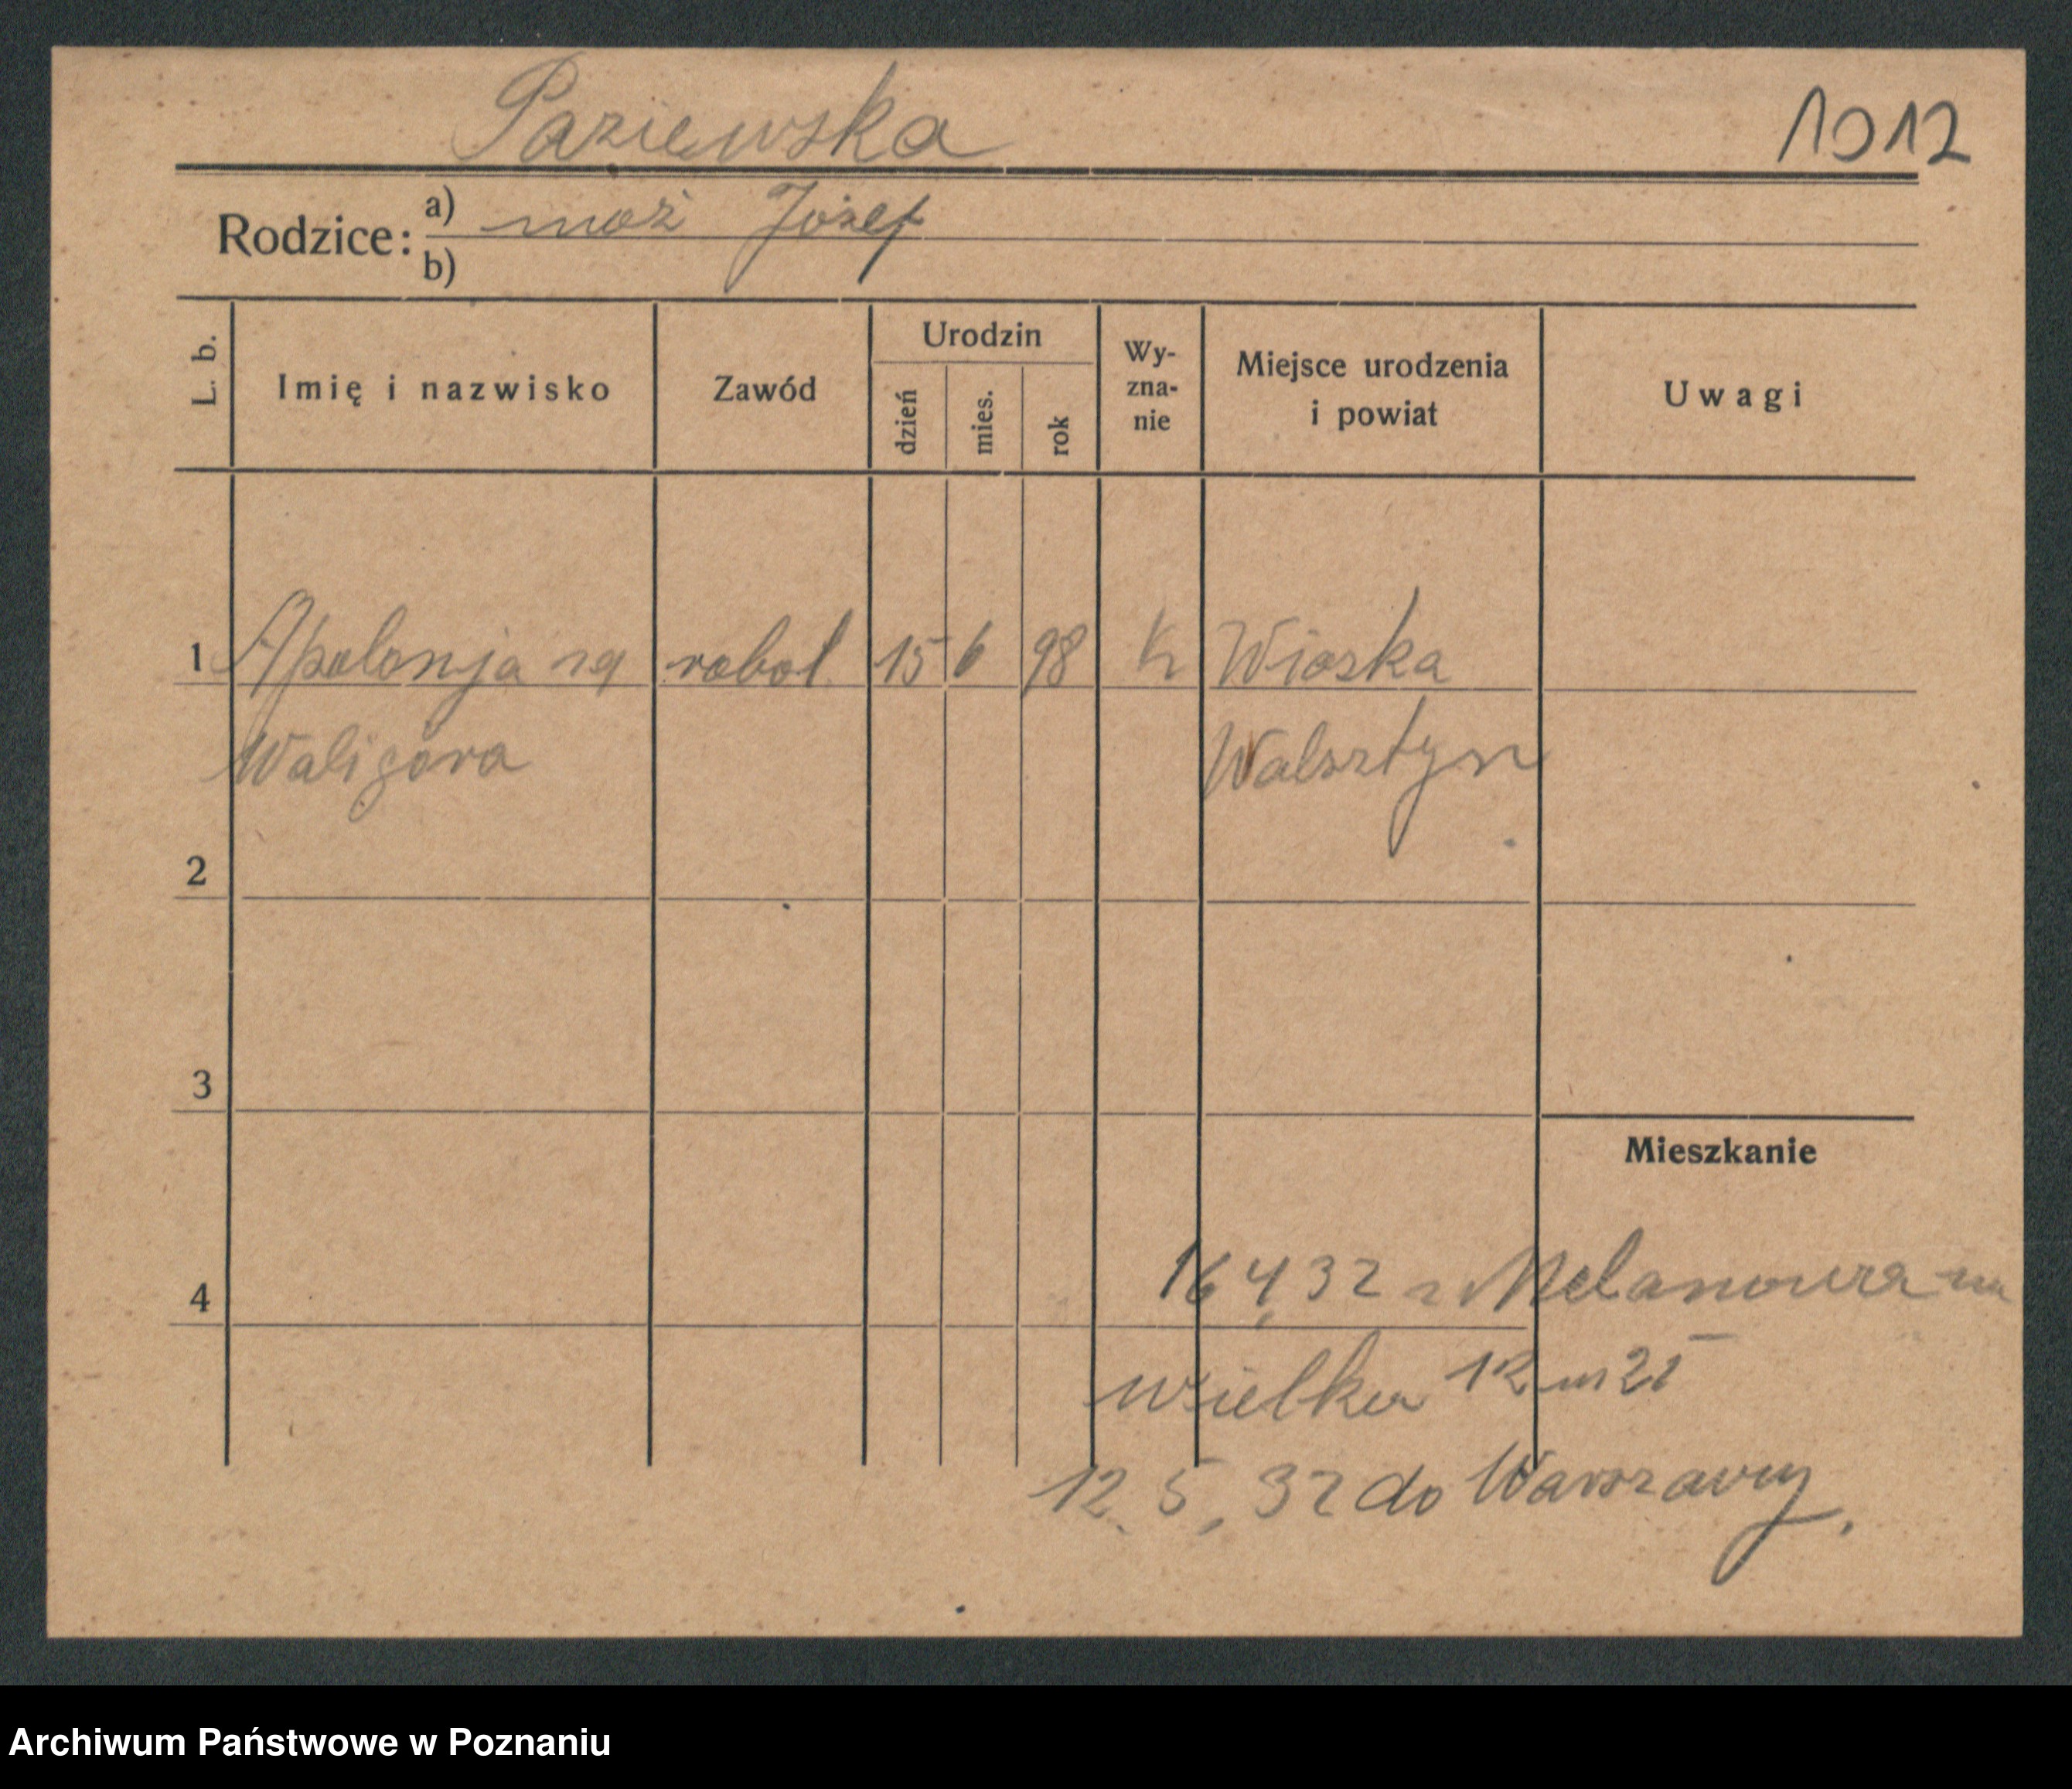 Paziewska
1012
Rodzice: a) mąż Józef
b)
L. b.
Imię i nazwisko
Zawód
Urodzin
dzień
mies.
rok
Wy-
zna-
nie
Miejsce urodzenia
i powiat
Uwagi
1 Apolonja robot. 15 6 98 k Wioska
Waligóra Wolsztyn
2
3
Mieszkanie
16 4, 32 z
4
wielka 12 m
12. 5, 32 do Warszawy.
Archiwum Państwowe w Poznaniu